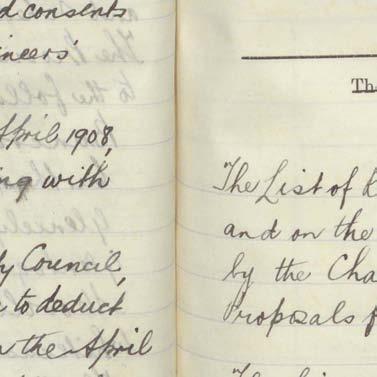 d consents
ineers'
April 1908,
ng with
y Council,
to deduct
the April
The
The List of
and on the
by the Cha
Proposals f